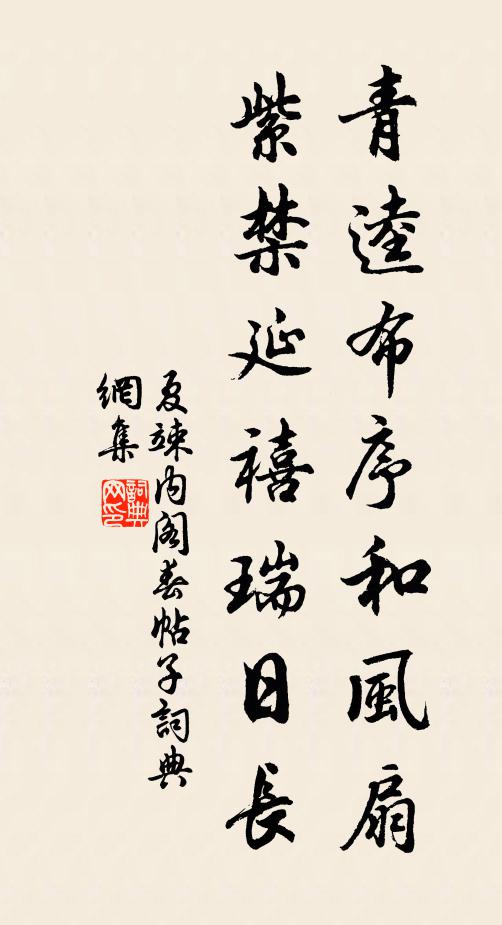 青逵布序和風扇
紫禁延禧瑞日長
夏竦內閣春帖子詞典
網集
詞典
网印